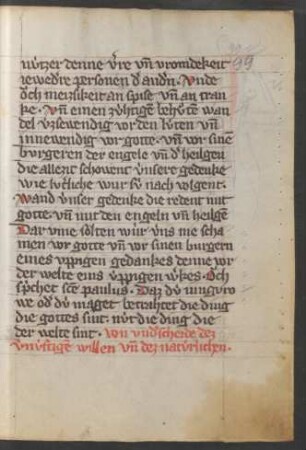 99
nùtzer denne v̍re vn̄ vromdekeit
iewedre personen d̍ andn̍. Vnde
ŏch meᷤsikeit an spise vn̄ an tran
ke. Vn̄ einen zv́htigē behv́te wan
del vᷤsewendig vor den lv́ten vn̄
innewendig vor gotte. vn̄ vor sinē
bvrgeren der engele vn̄ d̍ heilgen
die allezit schowent v́nsere gedenke
wie lv́tliche wir sv́ nach volgent.
Wand v́nser gedenke die redent mit
gotte. vn̄ mit den engeln vn̄ heilgē
Dar vme solten wir v́ns me scha
men vor gotte vn̄ vor sinen burgern
eines v́ppigen gedankes denne vor
der welte eins v́ppigen w̍kes. Och
sp̍chet scē paulus. Daz dv́ iungvro
we od̍ dv́ maget betrahtet die ding
die gottes sint. nv́t die ding die
der welte sint. von vnd̍scheide dez
v̍nv́ftigē willen vn̄ dez natv́rlichen.